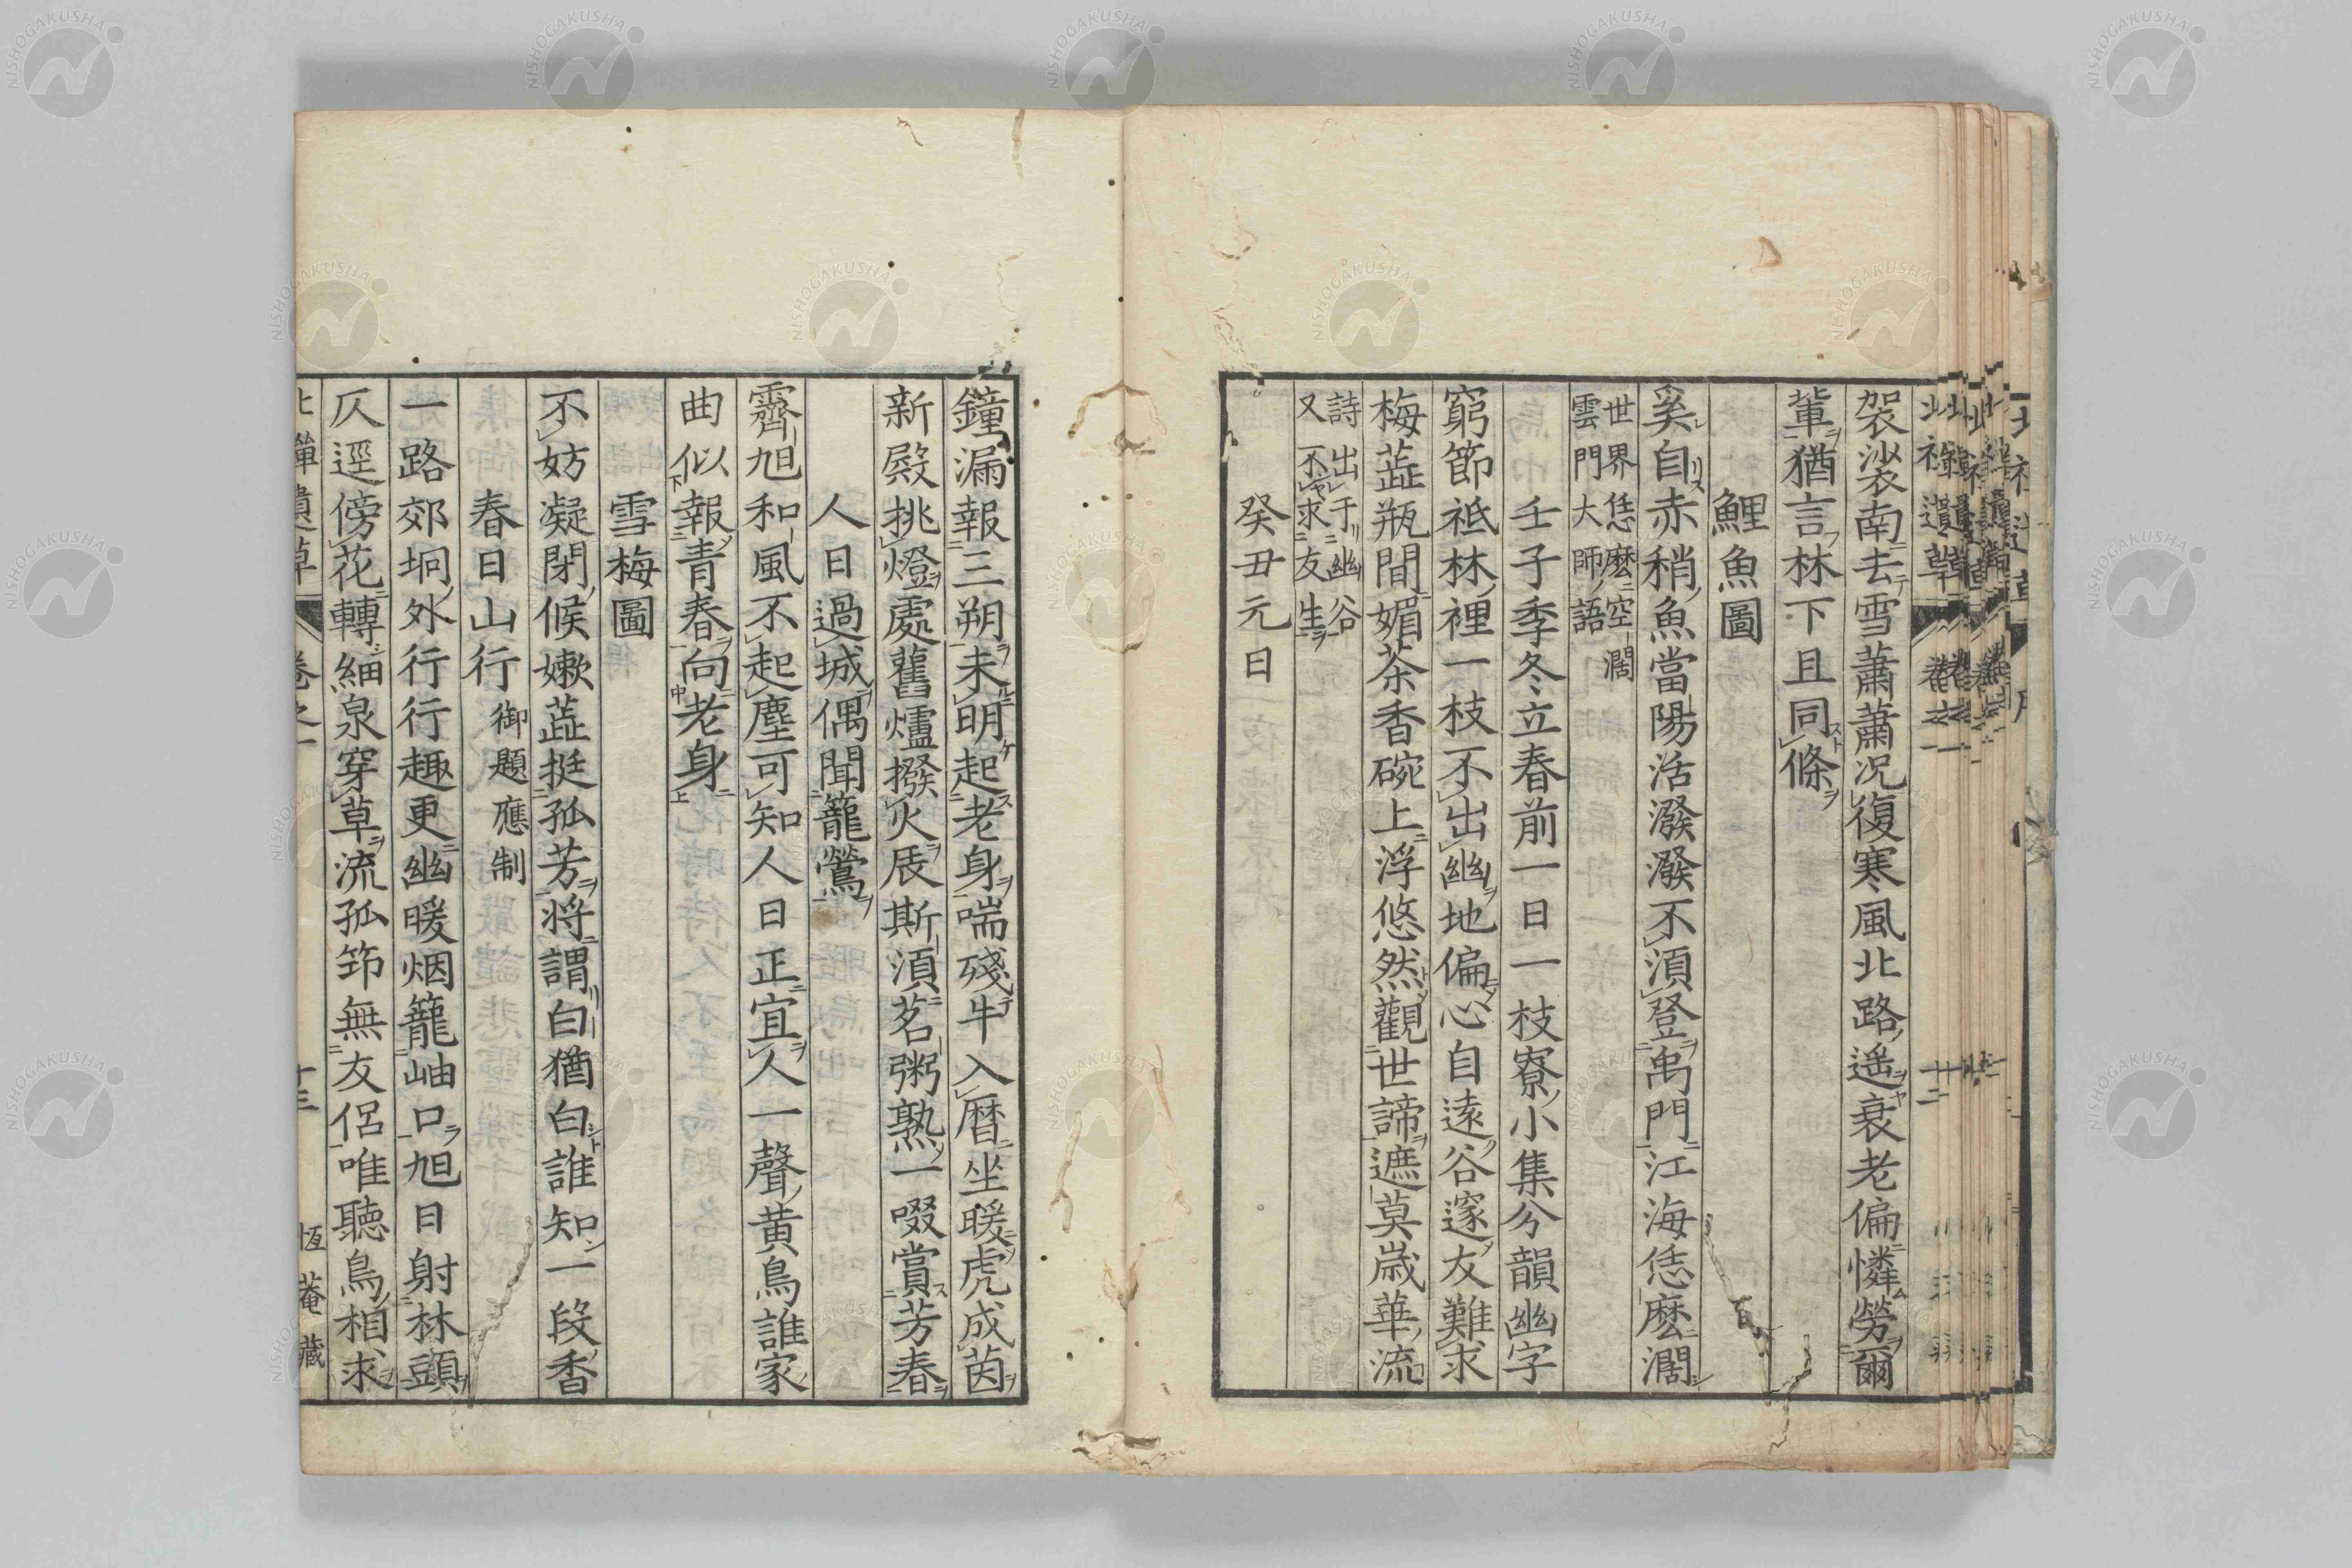 袈裟南去雪蕭蕭況復寒風北路遥衰老偏憐勞爾
輩猶言林下且同條
鯉魚圖
奚自赤稍魚當陽活潑潑不湏登禹門江海恁麼濶
世界恁麼空濶
雲門大師語
壬子季冬立春前一日一枝寮小集分韻幽字
窮節祗林裡一枝不出幽地偏心自遠谷邃友難求
梅蕋瓶間媚茶香碗上浮悠然觀世諦遮莫歳華流
詩出于幽谷
又不求友生
癸丑元日
鐘漏報三朔未明起老身喘殘牛入暦坐暖虎成茵
新殿挑燈處舊爐撥火辰斯湏茗粥熟一啜賞芳春
人日過城偶聞籠鶯
霽旭和風不起塵可知人日正宜人一聲黄鳥誰家
曲似報青春向老身
雪梅圖
不妨凝閉候嫩蕋挺孤芳将謂白猶白誰知一段香
春日山行 御題應制
一路郊坰外行行趣更幽暖烟籠岫口旭日射林頭
仄逕傍花轉細泉穿草流孤筇無友侶唯聴鳥相求
北禪遺草 卷之一 十三 恆菴藏
NISHOGAKUSHA